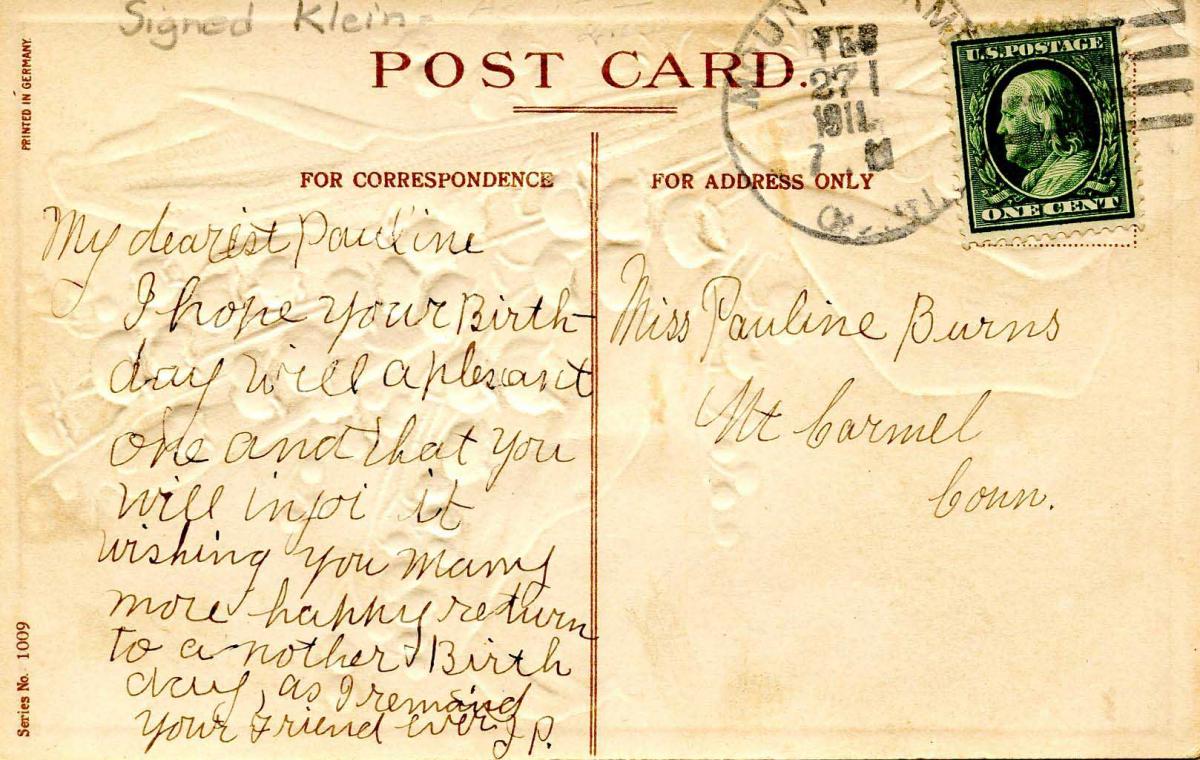 Signed Klein
PRINTED IN GERMANY.
POST CARD.
MOUNT CARM
FEB
27
1911
7
U.S. POSTAGE
ONE CENT
FOR CORRESPONDENCE
FOR ADDRESS ONLY
My dearist Pauline
I hope your Birth-
day will a plesant
one and that you
will injoi it
wishing you many
more happy return
to a nother Birth
day, as I remaind
your Friend ever J P.
Miss Pauline Burns
Mt Carmel
Conn.
Series No. 1009